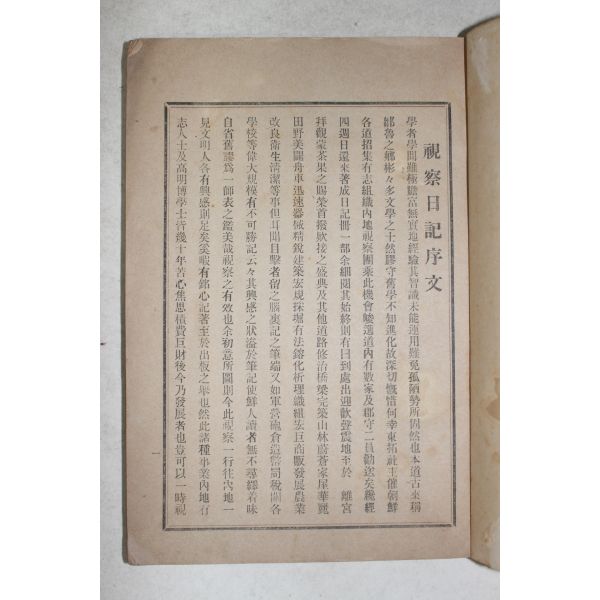 視察日記序文
學者學問雖極贍富無實地經驗其智識未能運用難免孤陋勢所固然也本道古來稱
鄒魯之鄉彬々多文學之士然膠守舊學不知進化故深切慨惜何幸東拓社主催朝鮮
各道招集有志組織內地視察團乘此機會峻選道內有數家及郡守二員勸送矣纔經
四週日還來著成日記冊一部余細閱其始終則有曰到處出迎歡聲震地至於 離宮
拜觀蒙茶果之賜榮首撥款接之盛典及其他道路修治橋梁完築山林蔚蒼家屋華麗
田野美闢舟車迅速器械精銳建築宏規採堀有法鎔化析理織組宏巨商販發展農業
改良衛生清潔等事但耳聞目擊者留之腦裏記之筆端又如軍營砲倉造幣局稅關各
學校等偉大規模有不可勝記云々其興感之狀溢於筆記使鮮人讀者無不尋繹着味
自省舊謬爲一師表之鑑美哉視察之有效也余初意所圖則今此視察一行往內地一
見文明人各有興感則足矣奚暇有銘心記著至於出版之舉也然此諸種事業內地有
志人士及高明博學士皆幾十年苦心焦思積費巨財後今乃發展者也豈可以一時視
一